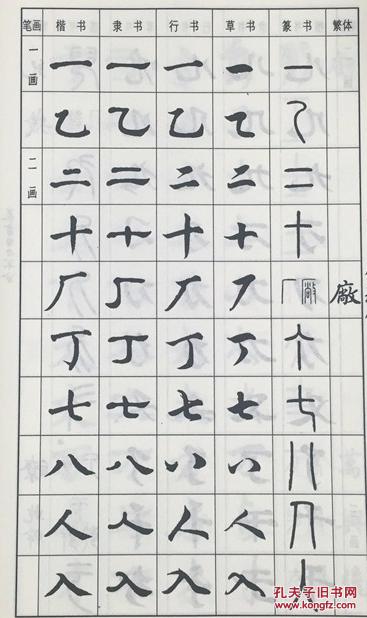 笔画 楷书 隶书 行书 草书 篆书 繁体
一画 一 一 一 一 一
乙 乙 乙 乙 乙
二画 二 二 二 二 二
十 十 十 十 十
厂 厂 厂 厂 厂 廠 廠
丁 丁 丁 丁 丁
七 七 七 七 七
八 八 八 八 八
人 人 人 人 人
入 入 入 入 入
孔夫子旧书网
www.kongfz.com